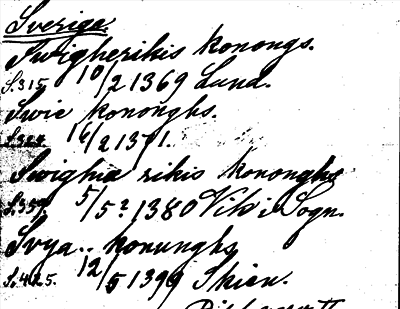 Sverige.
Swigherikis konongs.
S.315 10/2 1369 Lund.
Swic kononghs.
S.324 16/2 1371.
Swighia rikis kononghs
S.359 5/5? 1380 Vik i Sogn.
Svya.. konunghs
S.425. 12/5 1399 Skien.